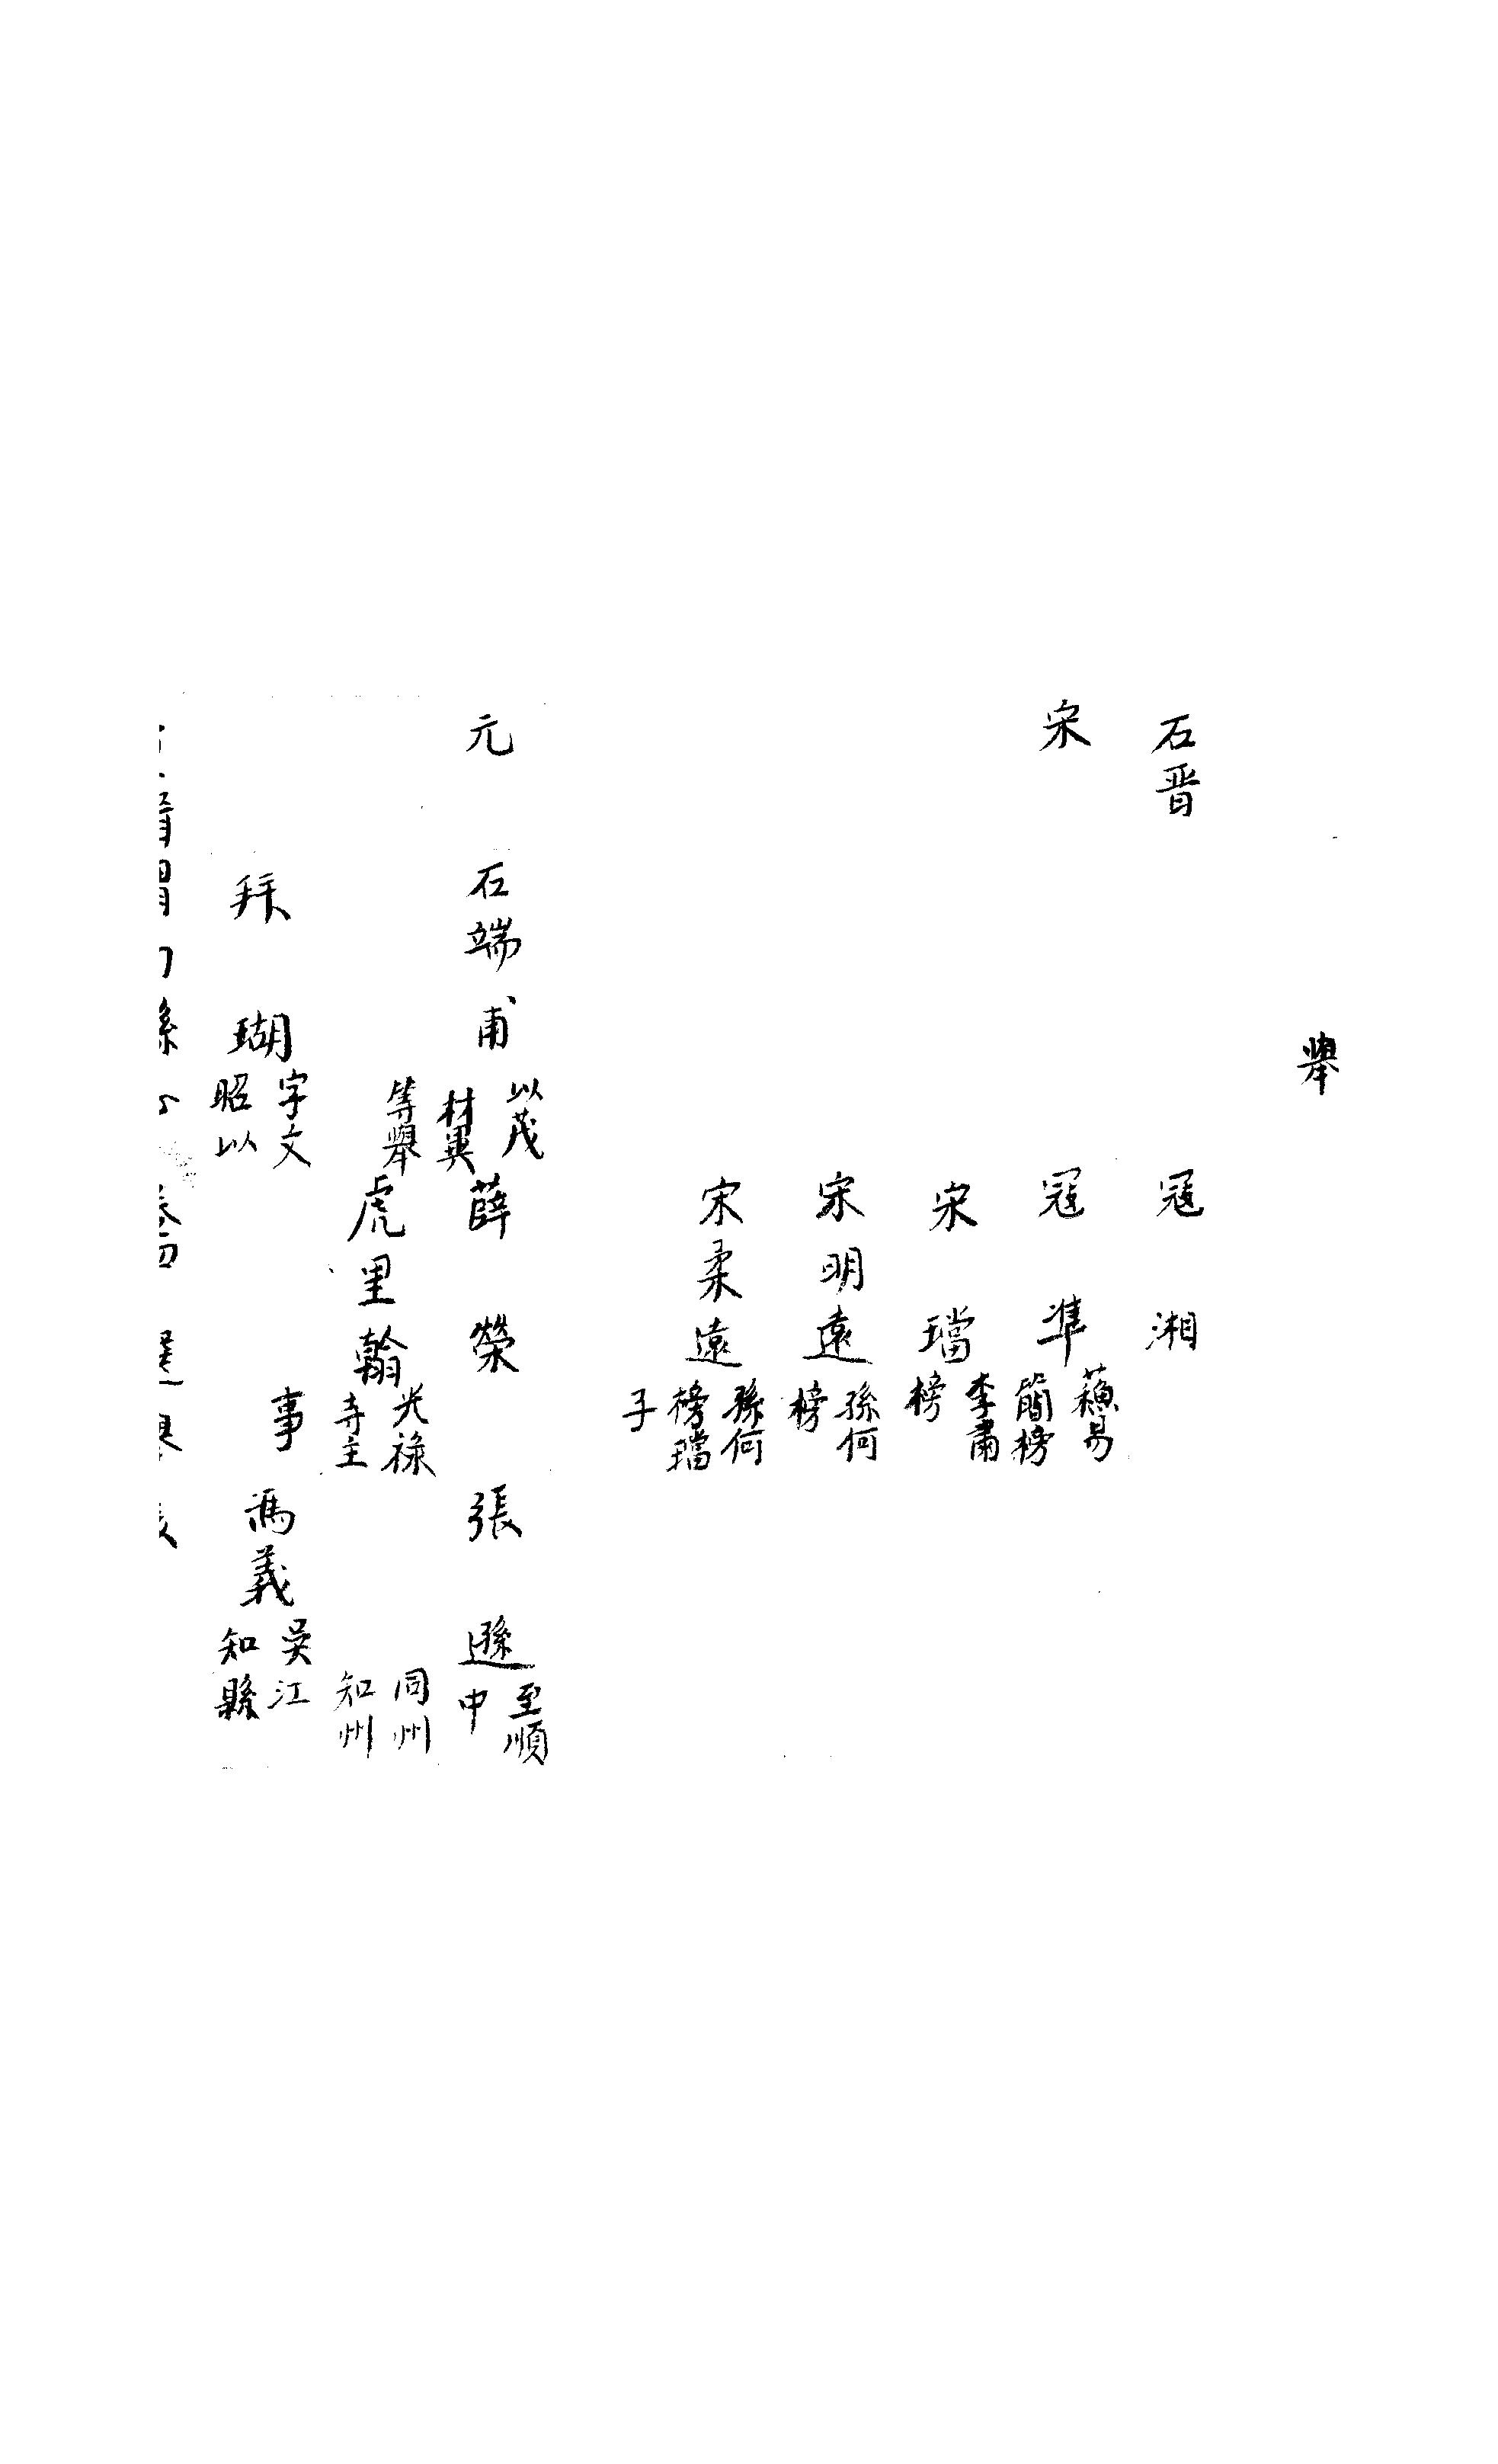 舉
石晋 冦湘
宋 冦準 蘓易簡榜
宋璫 李肅榜
宋明遠 孫何榜
宋柔遠 孫何榜璫子
元 石端甫 以茂材異等舉 薛榮 張遜 至順中
虎里翰 光祿寺主 同州知州
事
拜瑚 字文昭以 馮義 吴江知縣